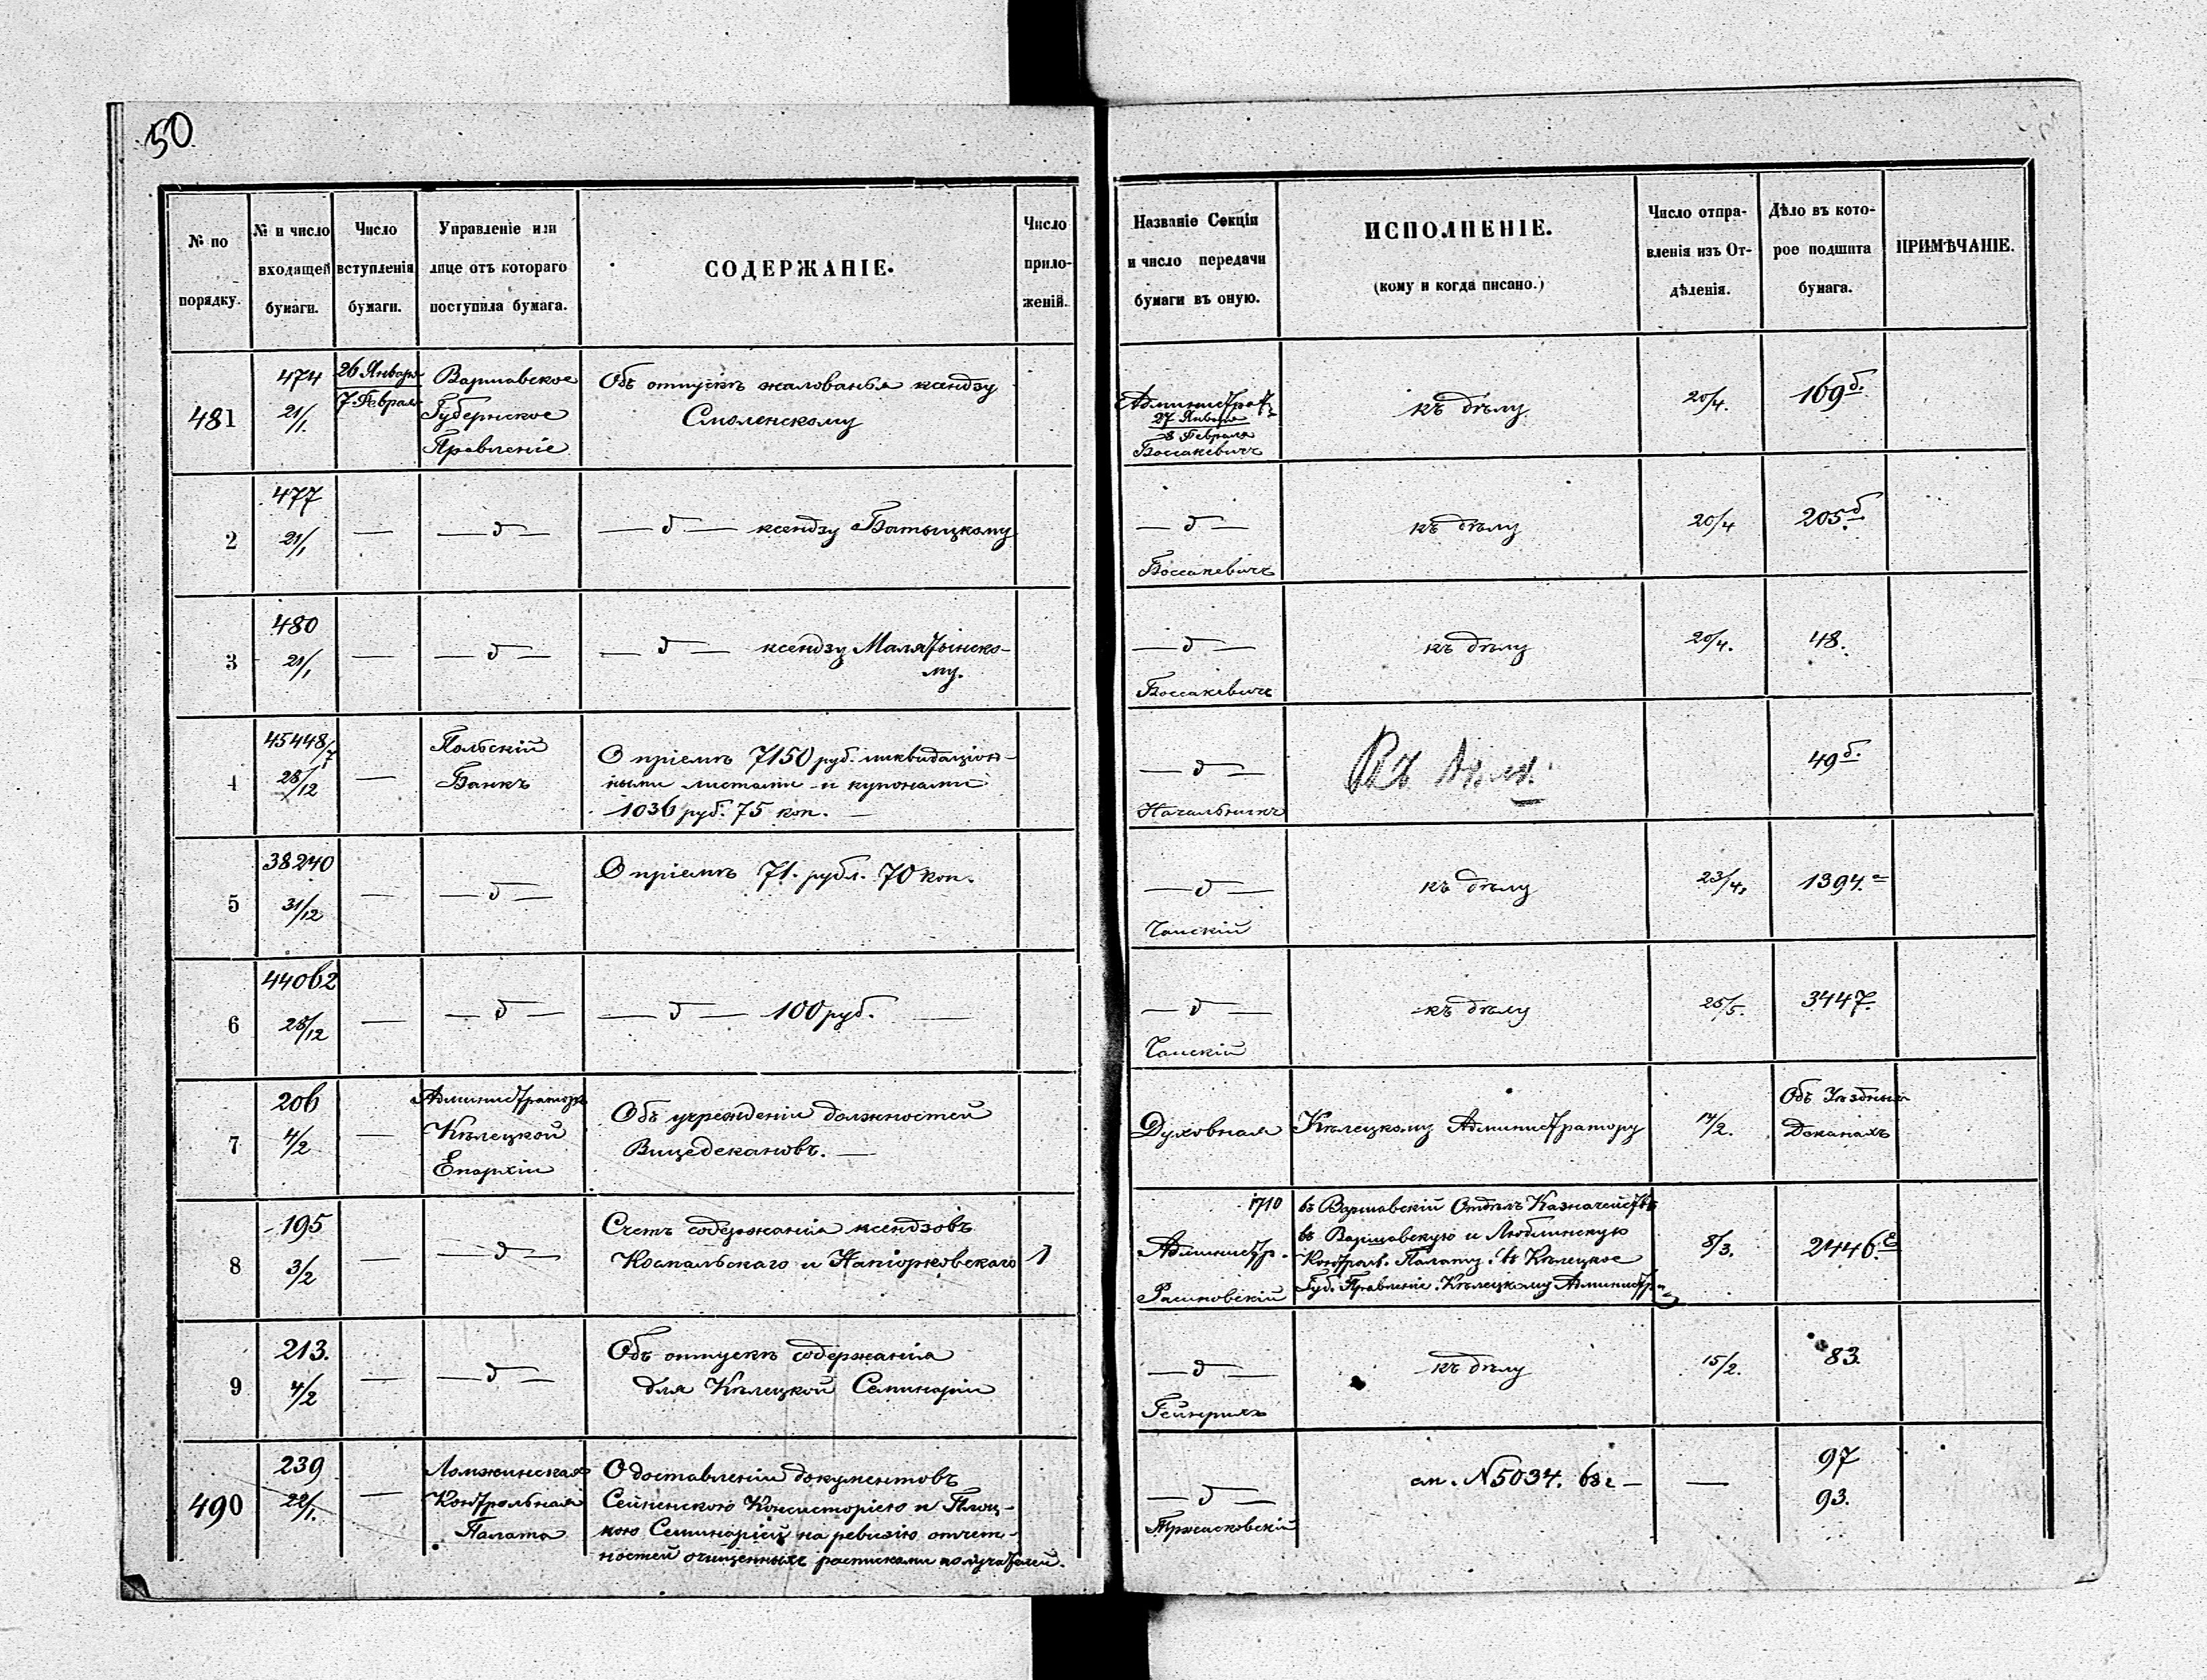 50
№ по порядку.
№ и число входящей бумаги.
Число вступленія бумаги.
Управленіе или лице отъ котораго поступила бумага.
СОДЕРЖАНІЕ.
Число приложеній.
Названіе Секціи и число передачи бумаги въ оную.
ИСПОЛНЕНІЕ.
(кому и когда писано.)
Число отправленія изъ Отдѣленія.
Дѣло въ которое подшита бумага.
ПРИМѢЧАНІЕ.
481
474
21/1.
26 Января
7 Феврал
Варшавское
Губернское
Правленіе
Объ отпускѣ жалованья ксендзу
Смоленскому
Администрат
27 Января
8 Февраля
Боссакевичъ
къ дѣлу
20/4.
169б.
2
477
21/1
— д —
— д — ксендзу
— д —
Боссакевичъ
къ дѣлу
20/4
205б
3
480
21/1
— д —
— д — ксендзу Малятынско-
му.
— д —
Боссакевичъ
къ дѣлу
20/4.
48.
4
45448/7
28/12
Польскій
Банкъ
О пріемѣ 7150 руб. ликвидаціон-
ными листами и купонами
1036 руб. 75 коп. —
— д —
Начальникъ
Къ дѣлу.
49б.
5
38240
31/12
— д —
О пріемѣ 71. рубл. 70 коп.
— д —
Чамскій
къ дѣлу
23/4.
1394.а
6
44062
28/12
— д —
— д — 100 руб. —
— д —
Чамскій
къ дѣлу
25/5.
3447.
7
206
4/2
Администраторъ
Кѣлецкой
Епархіи
Объ учрежденіи должностей
Вицедекановъ. —
Духовная
Кѣлецкому Администратору
14/2.
Объ Уѣздныхъ
Деканахъ
8
195
3/2
— д —
Счетъ содержанія ксендзовъ
Коспальскаго и Напіорковскаго
1
1710
Администр.
Расиновскій
въ Варшавскій Отдѣлъ Казначейства
въ Варшавскую и Люблинскую
Контрол. Палату. въ Кѣлецкое
Губ. Правленіе. Кѣлецкому Администр
8/3.
2446.
9
213.
4/2
— д —
Объ отпускѣ содержанія
для Кѣлецкой Семинаріи
— д —
Гейнрихъ
къ дѣлу
15/2.
83.
490
239
22/1.
Ломжинская
Контрольная
Палата
О доставленіи документовъ
Сейненскою Консисторіею и Плоц-
кою Семинаріей на ревизію отчет-
ностей очищенныхъ расписками получателей.
— д —
Тржасковскій
см. N 5034. 68 г —
—
97
93.